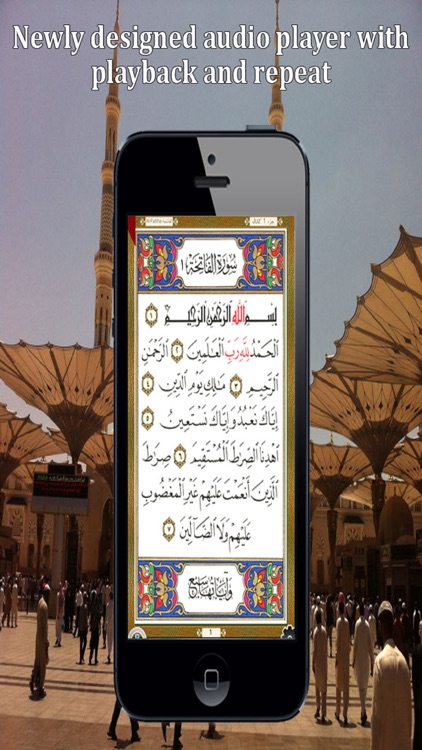 Newly designed audio player with
playback and repeat
Juz' 1 جزء
سُورَةُ الفَاتِحَةِ ١
بِسْمِ ٱللَّهِ ٱلرَّحْمَٰنِ ٱلرَّحِيمِ ١
ٱلْحَمْدُ لِلَّهِ رَبِّ ٱلْعَٰلَمِينَ ٢ ٱلرَّحْمَٰنِ
ٱلرَّحِيمِ ٣ مَٰلِكِ يَوْمِ ٱلدِّينِ ٤
إِيَّاكَ نَعْبُدُ وَإِيَّاكَ نَسْتَعِينُ ٥
ٱهْدِنَا ٱلصِّرَٰطَ ٱلْمُسْتَقِيمَ ٦ صِرَٰطَ
ٱلَّذِينَ أَنْعَمْتَ عَلَيْهِمْ غَيْرِ ٱلْمَغْضُوبِ
عَلَيْهِمْ وَلَا ٱلضَّآلِّينَ ٧
وَآيَاتُهَا سَبْعٌ
1